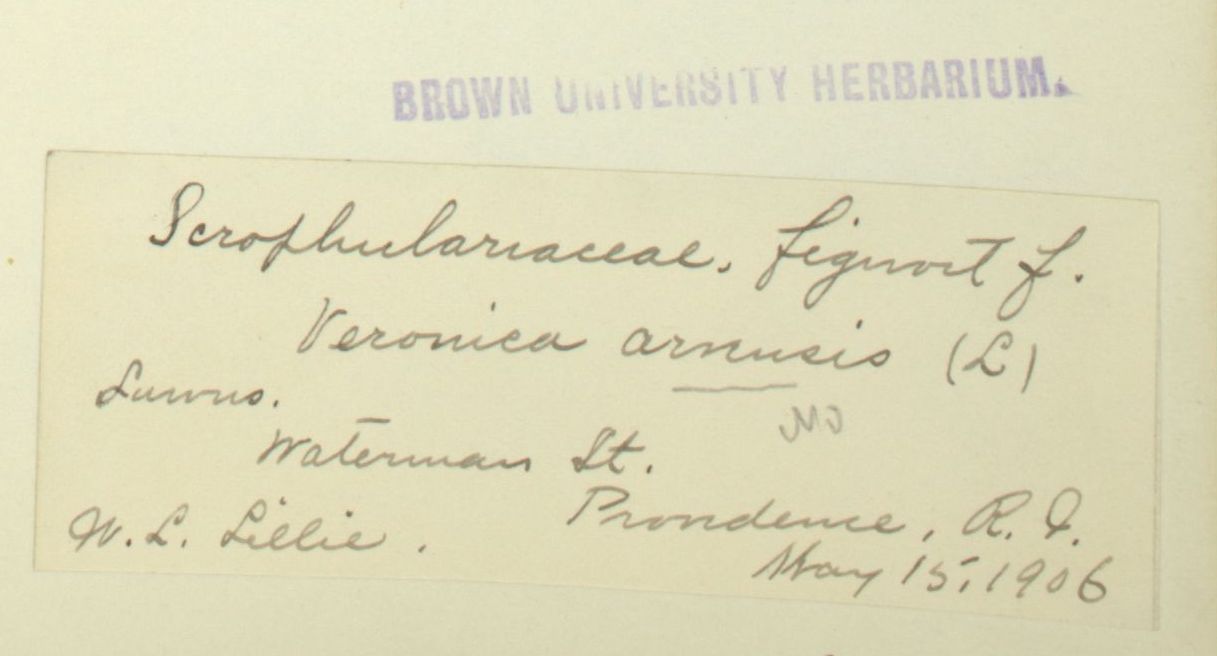 BROWN UNIVERSITY HERBARIUM.
Scrophulariaceae. Figwort f.
Veronica arvensis (L)
Lawns.
Waterman St.
W. L. Lillie.
Providence, R. I.
May 15, 1906